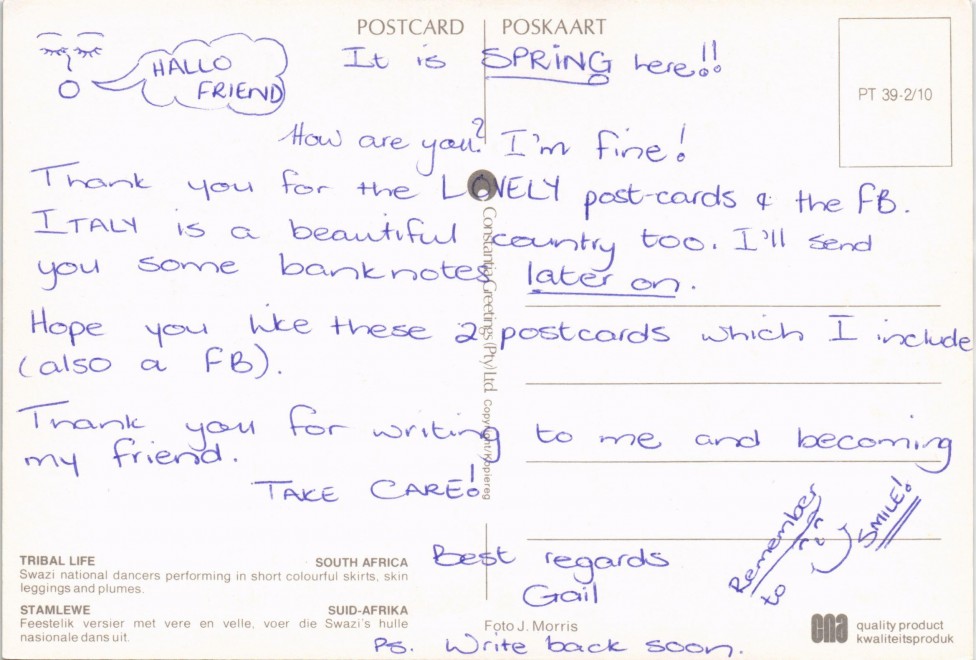 POSTCARD POSKAART
HALLO
FRIEND
It is SPRING here!!
PT 39-2/10
How are you? I'm fine!
Thank you for the LOVELY post-cards & the FB.
ITALY is a beautiful country too. I'll send
you some banknotes later on.
Hope you like these 2 postcards which I include
(also a FB).
Thank you for writing to me and becoming
my friend.
TAKE CARE!
Remember
to
SMILE!
Best regards
Gail
Ps. Write back soon.
Constantia Greetings (Pty) Ltd. Copyright/Kopiereg
TRIBAL LIFE SOUTH AFRICA
Swazi national dancers performing in short colourful skirts, skin
leggings and plumes.
STAMLEWE SUID-AFRIKA
Feestelik versier met vere en velle, voer die Swazi's hulle
nasionale dans uit.
Foto J. Morris
cna quality product
kwaliteitsproduk